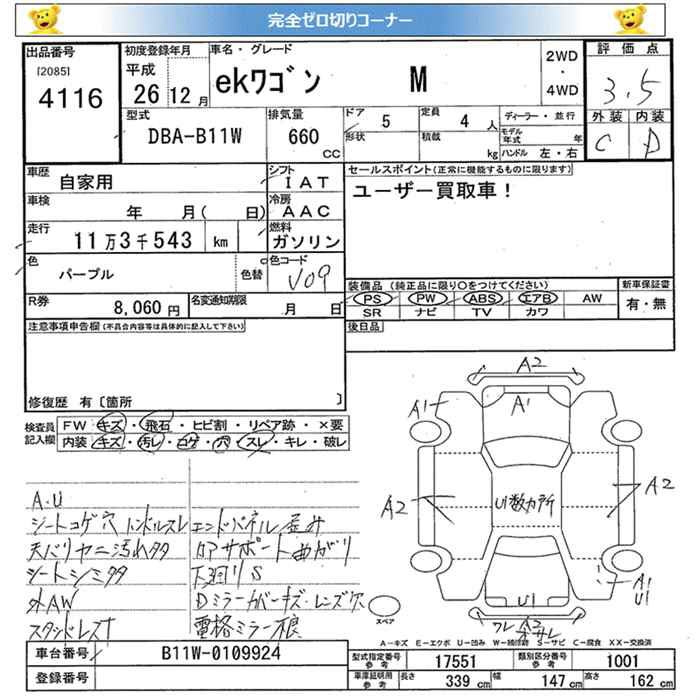 完全ゼロ切りコーナー
出品番号
[2085]
4116
初度登録年月
平成
26 12 月
車名・グレード
ekワゴン M
2WD
・
4WD
評価点
3.5
外装 内装
C D
型式
DBA-B11W
排気量
660
CC
ドア 5
形状
定員 4 人
積載 kg
ディーラー・並行
モデル年式 年
ハンドル 左・右
車歴 自家用
シフト IAT
車検 年 月( 日)
冷房 AAC
走行 11万3千543 km
燃料 ガソリン
色 パープル
色替
色コード V09
R券 8,060 円
名変通知期限 月 日
セールスポイント(正常に機能するものに限ります)
ユーザー買取車!
装備品(純正品に限り○をつけてください)
PS PW ABS エアB AW
SR ナビ TV カワ
新車保証書
有・無
後日品
注意事項申告欄(不具合内容等は具体的に記入して下さい)
修復歴 有〔箇所 〕
検査員記入欄
FW キズ・飛石・ヒビ割・リペア跡・×要
内装 キズ・汚レ・白ケ・穴・スレ・キレ・破レ
A.U
シートコゲ穴 ハンドルスレ
天バリヤニ汚れタタ
シートシミタタ
外AW
スタッドレス付
エンドパネル歪み
コアサポート曲がり
下廻りS
Dミラーカバーキズ・レンズ欠
電格ミラー根
A2
A1
A1
A2
U1数カ所
A2
A1
U1
U1
ワレ A2
スペア
A-キズ E-エクボ U-凹み W-補修跡 S-サビ C-腐食 XX-交換済
車台番号 B11W-0109924
登録番号
型式指定番号 参考 17551
類別区分番号 参考 1001
車庫証明用 参考 長さ 339 cm 幅 147 cm 高さ 162 cm